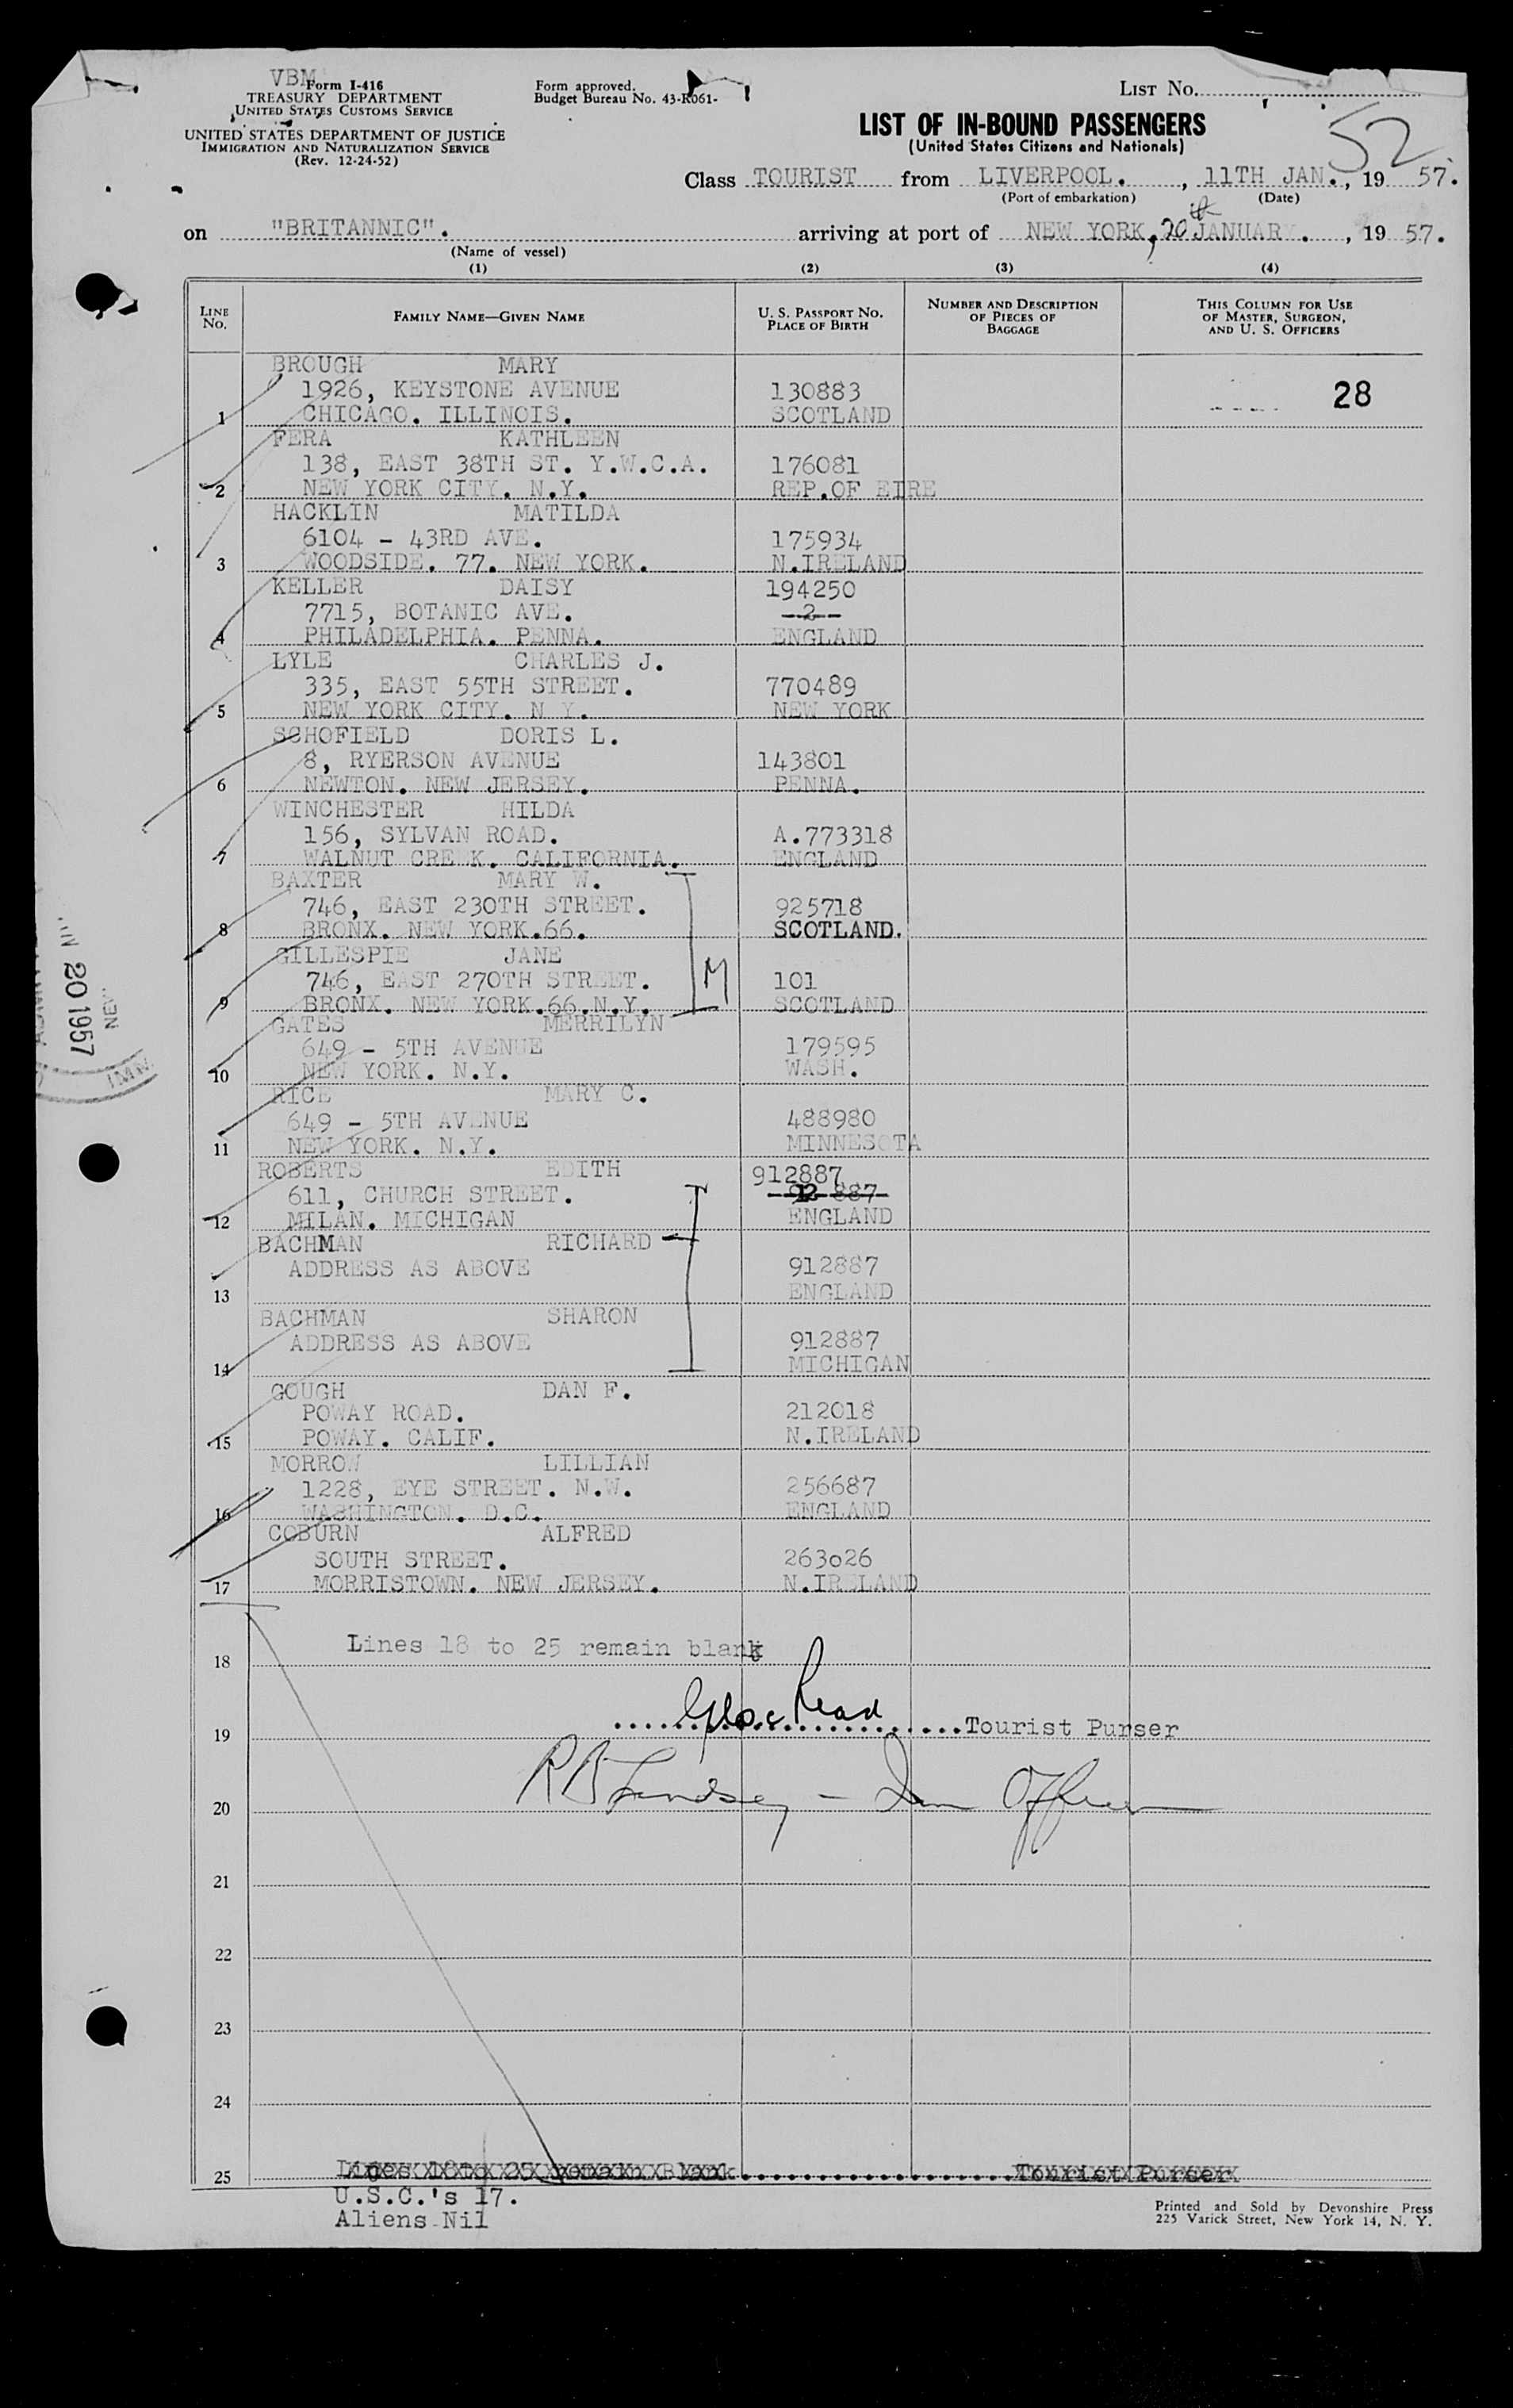 VBM
Form I-416
TREASURY DEPARTMENT
UNITED STATES CUSTOMS SERVICE
UNITED STATES DEPARTMENT OF JUSTICE
IMMIGRATION AND NATURALIZATION SERVICE
(Rev. 12-24-52)
Form approved.
Budget Bureau No. 43-R061-
LIST NO.
52
LIST OF IN-BOUND PASSENGERS
(United States Citizens and Nationals)
Class TOURIST from LIVERPOOL. , 11TH JAN. , 19 57.
(Port of embarkation) (Date)
on "BRITANNIC". arriving at port of NEW YORK, 20th JANUARY. , 19 57.
(Name of vessel)
(1) (2) (3) (4)
LINE NO. FAMILY NAME—GIVEN NAME U. S. PASSPORT NO. PLACE OF BIRTH NUMBER AND DESCRIPTION OF PIECES OF BAGGAGE THIS COLUMN FOR USE OF MASTER, SURGEON, AND U. S. OFFICERS
BROUGH MARY
1926, KEYSTONE AVENUE 130883 28
1 CHICAGO. ILLINOIS. SCOTLAND
FERA KATHLEEN
138, EAST 38TH ST. Y.W.C.A. 176081
2 NEW YORK CITY. N.Y. REP.OF EIRE
HACKLIN MATILDA
6104 - 43RD AVE. 175934
3 WOODSIDE. 77. NEW YORK. N.IRELAND
KELLER DAISY 194250
7715, BOTANIC AVE. --2--
4 PHILADELPHIA. PENNA. ENGLAND
LYLE CHARLES J.
335, EAST 55TH STREET. 770489
5 NEW YORK CITY. N Y. NEW YORK
SCHOFIELD DORIS L.
8, RYERSON AVENUE 143801
6 NEWTON. NEW JERSEY. PENNA.
WINCHESTER HILDA
156, SYLVAN ROAD. A.773318
7 WALNUT CREEK. CALIFORNIA. ENGLAND
BAXTER MARY W.
746, EAST 230TH STREET. 925718
8 BRONX. NEW YORK.66. SCOTLAND.
GILLESPIE JANE
746, EAST 270TH STREET. M 101
9 BRONX. NEW YORK.66.N.Y. SCOTLAND
GATES MERRILYN
649 - 5TH AVENUE 179595
10 NEW YORK. N.Y. WASH.
RICE MARY C.
649 - 5TH AVENUE 488980
11 NEW YORK. N.Y. MINNESOTA
ROBERTS EDITH 912887
611, CHURCH STREET. 887
12 MILAN. MICHIGAN ENGLAND
BACHMAN RICHARD
ADDRESS AS ABOVE 912887
13 ENGLAND
BACHMAN SHARON
ADDRESS AS ABOVE 912887
14 MICHIGAN
GOUGH DAN F.
POWAY ROAD. 212018
15 POWAY. CALIF. N.IRELAND
MORROW LILLIAN
1228, EYE STREET. N.W. 256687
16 WASHINGTON. D.C. ENGLAND
COBURN ALFRED
SOUTH STREET. 263026
17 MORRISTOWN. NEW JERSEY. N.IRELAND
Lines 18 to 25 remain blank
18
19 Tourist Purser
R B Lindsey - Imm Officer
20
21
22
23
24
25 Lines 18 to 25 remain Blank Tourist Purser
U.S.C.'s 17.
Aliens Nil
Printed and Sold by Devonshire Press
225 Varick Street, New York 14, N. Y.
20 1957
NEW
IMM